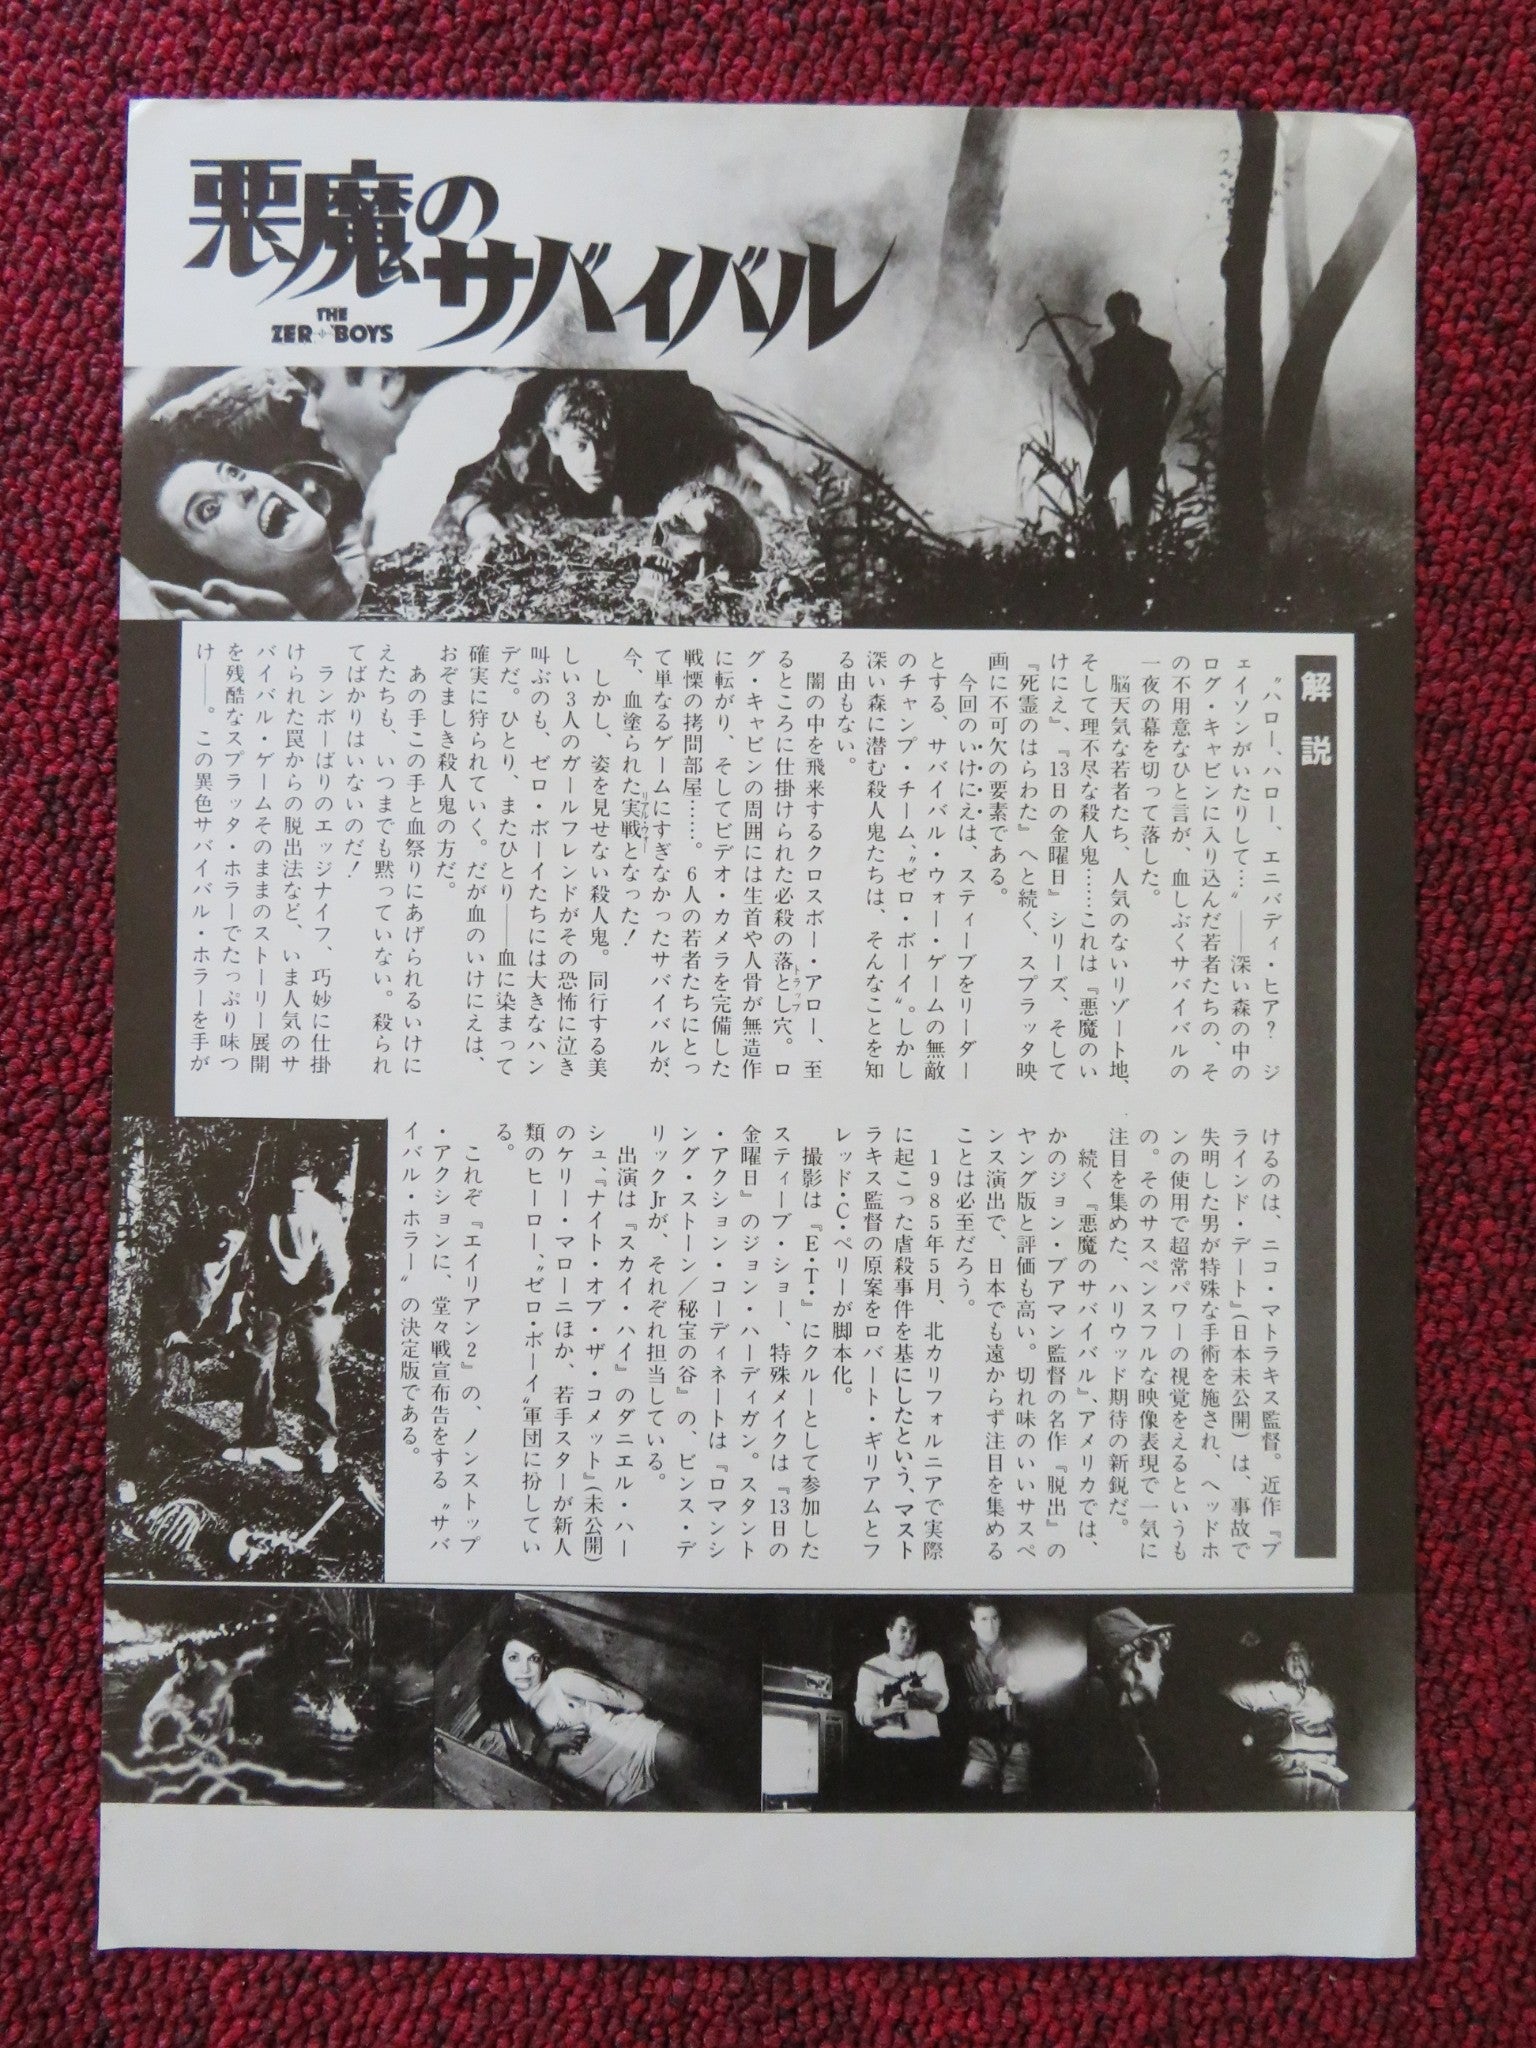 悪魔の
サバイバル
THE
ZERO BOYS
解説
〝ハロー、ハロー、エニバディ・ヒア? ジ
ェイソンがいたりして…〟——深い森の中の
ログ・キャビンに入り込んだ若者たちの、そ
の不用意なひと言が、血しぶくサバイバルの
一夜の幕を切って落した。
脳天気な若者たち、人気のないリゾート地、
そして理不尽な殺人鬼……これは『悪魔のい
けにえ』、『13日の金曜日』シリーズ、そして
『死霊のはらわた』へと続く、スプラッタ映
画に不可欠の要素である。
今回のいけにえは、スティーブをリーダー
とする、サバイバル・ウォー・ゲームの無敵
のチャンプ・チーム、〝ゼロ・ボーイ〟。しかし
深い森に潜む殺人鬼たちは、そんなことを知
る由もない。
闇の中を飛来するクロスボー・アロー、至
るところに仕掛けられた必殺の落とし穴トラップ。ロ
グ・キャビンの周囲には生首や人骨が無造作
に転がり、そしてビデオ・カメラを完備した
戦慄の拷問部屋……。6人の若者たちにとっ
て単なるゲームにすぎなかったサバイバルが、
今、血塗られた実戦リアル・ウォーとなった!
しかし、姿を見せない殺人鬼。同行する美
しい3人のガールフレンドがその恐怖に泣き
叫ぶのも、ゼロ・ボーイたちには大きなハン
デだ。ひとり、またひとり——血に染まって
確実に狩られていく。だが血のいけにえは、
おぞましき殺人鬼の方だ。
あの手この手と血祭りにあげられるいけに
えたちも、いつまでも黙っていない。殺られ
てばかりはいないのだ!
ランボーばりのエッジナイフ、巧妙に仕掛
けられた罠からの脱出法など、いま人気のサ
バイバル・ゲームそのままのストーリー展開
を残酷なスプラッタ・ホラーでたっぷり味つ
け——。この異色サバイバル・ホラーを手が
けるのは、ニコ・マトラキス監督。近作『ブ
ラインド・デート』(日本未公開)は、事故で
失明した男が特殊な手術を施され、ヘッドホ
ンの使用で超常パワーの視覚をえるというも
の。そのサスペンスフルな映像表現で一気に
注目を集めた、ハリウッド期待の新鋭だ。
続く『悪魔のサバイバル』、アメリカでは、
かのジョン・ブアマン監督の名作『脱出』の
ヤング版と評価も高い。切れ味のいいサスペ
ンス演出で、日本でも遠からず注目を集める
ことは必至だろう。
1985年5月、北カリフォルニアで実際
に起こった虐殺事件を基にしたという、マスト
ラキス監督の原案をロバート・ギリアムとフ
レッド・C・ペリーが脚本化。
撮影は『E・T・』にクルーとして参加した
スティーブ・ショー、特殊メイクは『13日の
金曜日』のジョン・ハーディガン。スタント
・アクション・コーディネートは『ロマンシ
ング・ストーン/秘宝の谷』の、ビンス・デ
リックJrが、それぞれ担当している。
出演は『スカイ・ハイ』のダニエル・ハー
シュ、『ナイト・オブ・ザ・コメット』(未公開)
のケリー・マローニほか、若手スターが新人
類のヒーロー、〝ゼロ・ボーイ〟軍団に扮してい
る。
これぞ『エイリアン2』の、ノンストップ
・アクションに、堂々戦宣布告をする〝サバ
イバル・ホラー〟の決定版である。